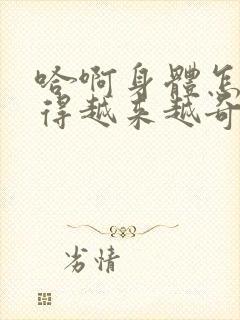 哈啊身體怎
得越来越奇
劣情